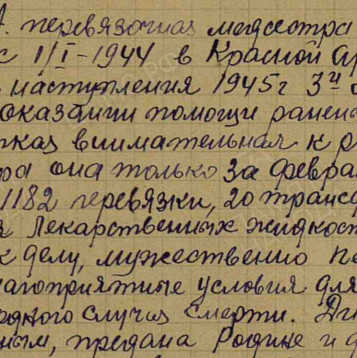 А. перевязочная медсестра
с 1/I-1944 в Красной Ар
наступления 1945г 3й
оказании помощи ранен
тказ внимательная к р
она только за февра
1182 перевязки, 20 транс
Лекарственных жидкост
к делу, мужественно пе
лагоприятные условия для
одного случая смерти.
ным, предана Родине и д